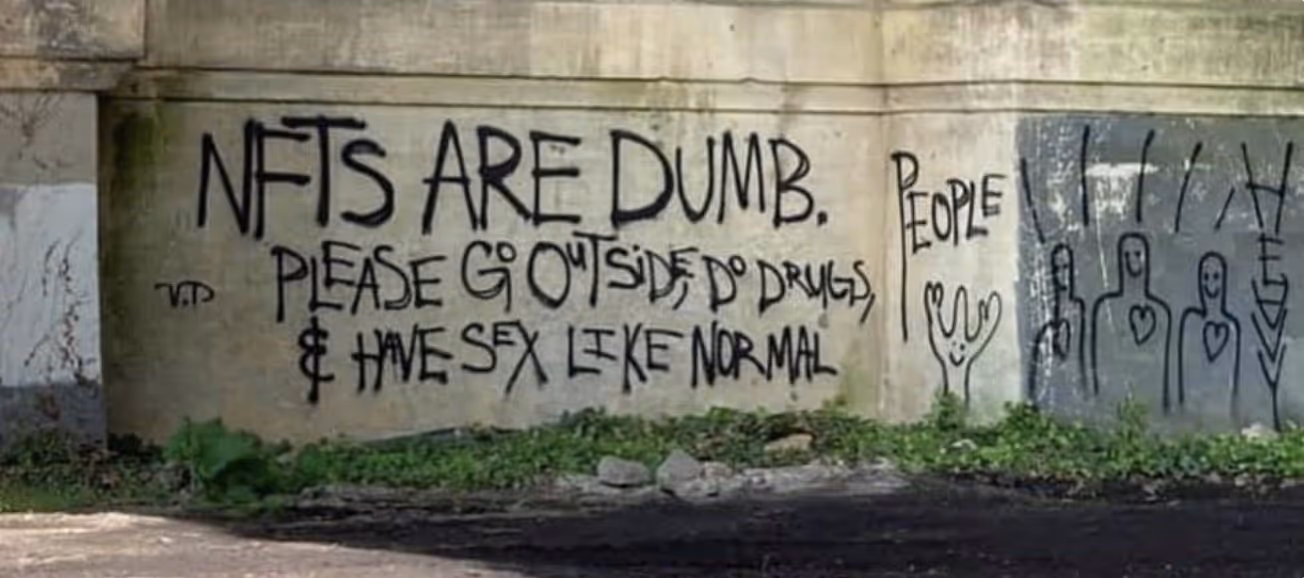 NFTS ARE DUMB.
PLEASE GO OUTSIDE, DO DRUGS,
& HAVE SEX LIKE NORMAL
PEOPLE
V.D